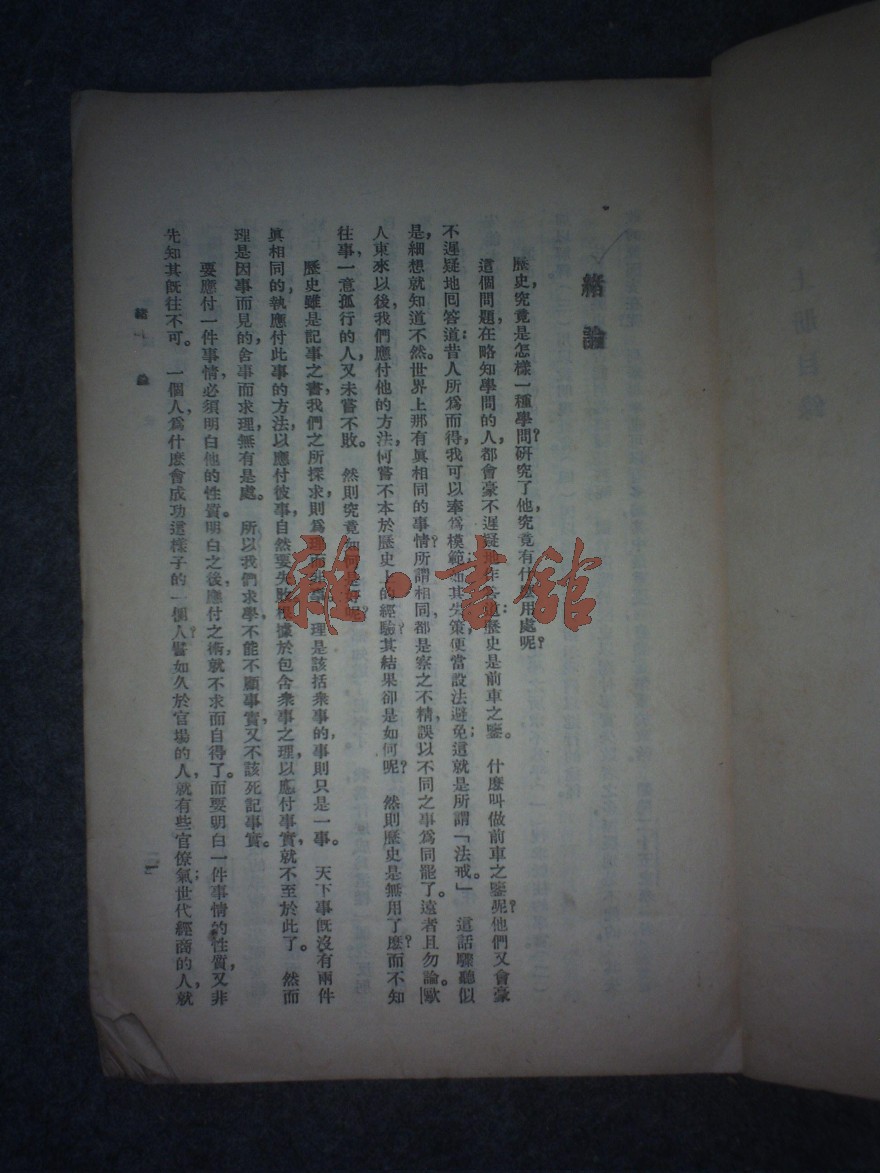 緒論
歷史究竟是怎樣一種學問?研究了他究竟有什麽用處呢?
這個問題在略知學問的人都會毫不遲疑地作答道:歷史是前車之鑒。 什麽叫做前車之鑒呢?他們又會豪
不遲疑地回答道:昔人所爲而得,我可以奉爲模範;如其失策,便當設法避免;這就是所謂「法戒。」 這話驟聽似
是,細想就知道不然。世界上那有眞相同的事情?所謂相同,都是察之不精,誤以不同之事爲同罷了。遠者且勿論。歐
人東來以後,我們應付他的方法,何嘗不本於歷史上的經驗?其結果卻是如何呢? 然則歷史是無用了麽?而不知
往事,一意孤行的人,又未嘗不敗。 然則究竟如何是好呢?
歷史雖是記事之書,我們之所探求,則爲理而非事。理是該括衆事的,事則只是一事。 天下事旣沒有兩件
眞相同的,執應付此事的方法,以應付彼事,自然要失敗。根據於包含衆事之理,以應付事實,就不至於此了。 然而
理是因事而見的,舍事而求理,無有是處。 所以我們求學,不能不顧事實,又不該死記事實。
要應付一件事情,必須明白他的性質。明白之後,應付之術,就不求而自得了。而要明白一件事情的性質,又非
先知其旣往不可。 一個人,爲什麽會成功這樣子的一個人?譬如久於官場的人,就有些官僚氣;世代經商的人,就
緒論
一
雜·書館
上册目錄